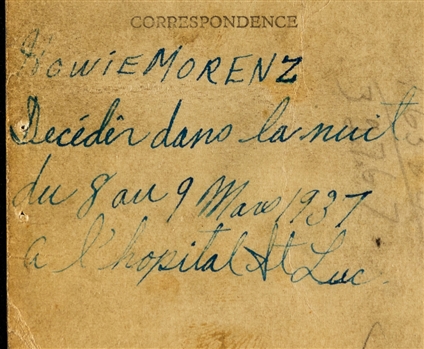 CORRESPONDENCE
Howie MORENZ
Decédér dans la nuit
du 8 au 9 Mars 1937
a l'hopital St Luc.